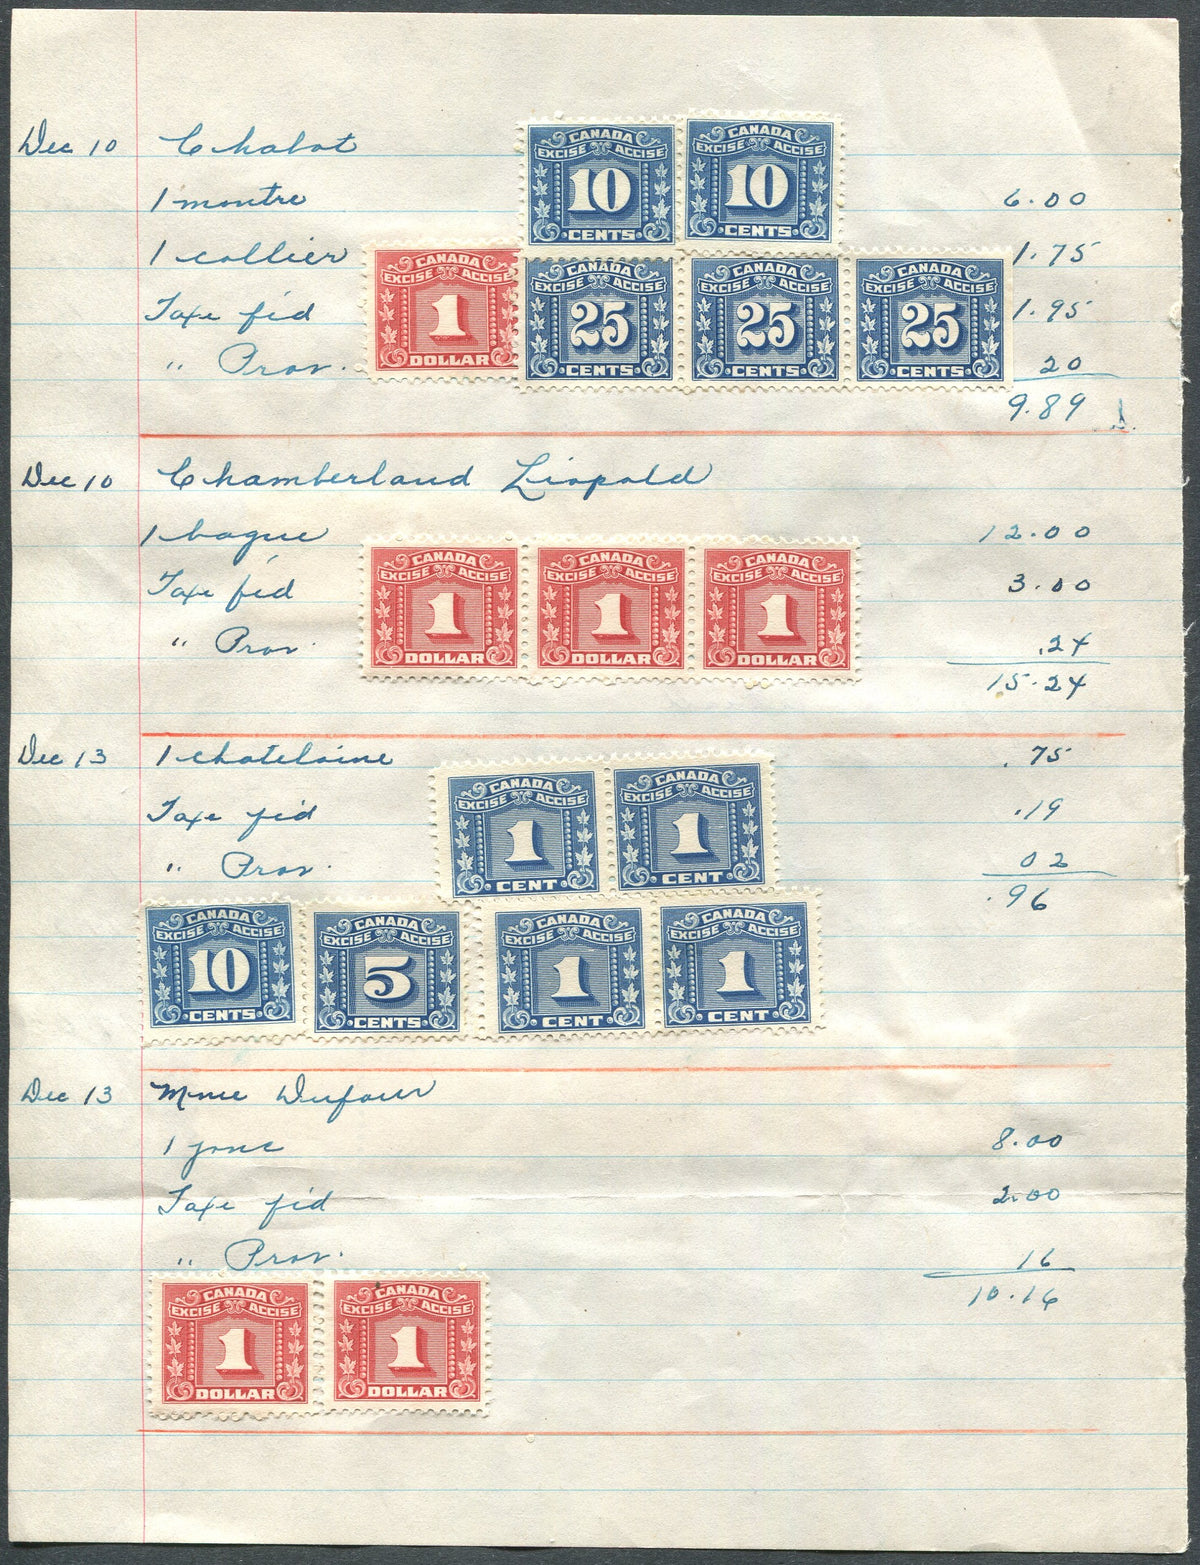 Dec 10 Chabot
1 montre 6.00
1 collier 1.75
Taxe féd 1.95
" Prov. 20
9.89
CANADA EXCISE ACCISE 10 CENTS
CANADA EXCISE ACCISE 10 CENTS
CANADA EXCISE ACCISE 1 DOLLAR
CANADA EXCISE ACCISE 25 CENTS
CANADA EXCISE ACCISE 25 CENTS
CANADA EXCISE ACCISE 25 CENTS
Dec 10 Chamberland Liopold
1 bague 12.00
Taxe féd 3.00
" Prov. .24
15.24
CANADA EXCISE ACCISE 1 DOLLAR
CANADA EXCISE ACCISE 1 DOLLAR
CANADA EXCISE ACCISE 1 DOLLAR
Dec 13 1 chatelaine .75
Taxe féd .19
" Prov. 02
.96
CANADA EXCISE ACCISE 1 CENT
CANADA EXCISE ACCISE 1 CENT
CANADA EXCISE ACCISE 10 CENTS
CANADA EXCISE ACCISE 5 CENTS
CANADA EXCISE ACCISE 1 CENT
CANADA EXCISE ACCISE 1 CENT
Dec 13 Mme Dufour
1 jonc 8.00
Taxe féd 2.00
" Prov. 16
10.16
CANADA EXCISE ACCISE 1 DOLLAR
CANADA EXCISE ACCISE 1 DOLLAR